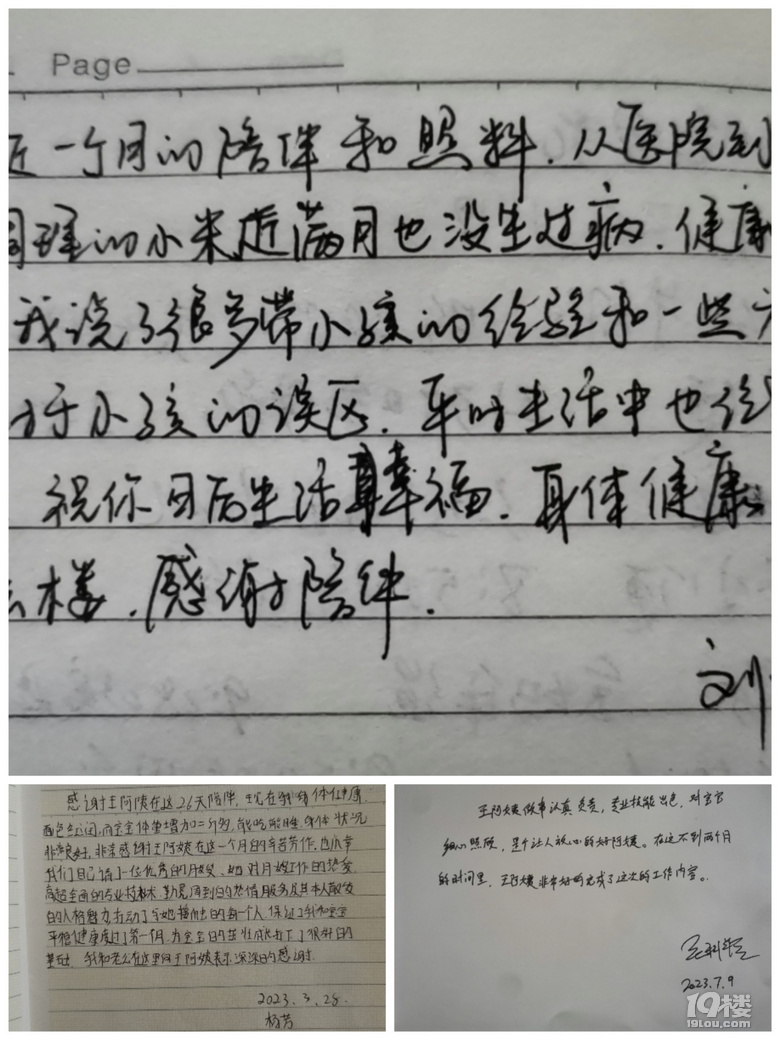 Page
近一个月的陪伴和照料.从医院到
调理的小米近满月也没生过病.健康
我说了很多带小孩的经验和一些
于小孩的误区.平时生活中也给
祝你日后生活幸福.身体健康
楼.感谢陪伴.
刘
感谢王阿姨在这26天陪伴,现在我身体健康,
面色红润,而宝宝体重增加二斤多,能吃能睡,身体状况
非常良好,非常感谢王阿姨在这一个月的辛苦劳作,也庆幸
我们自己请了一位优秀的月嫂,她对月嫂工作的热爱,
高超全面的专业技术,勤恳周到的热情服务及其本人散发
的人格魅力打动了与她接触的每一个人,保证了我和宝宝
平稳健康度过了第一个月,为宝宝的茁壮成长打下了很好的
基础.我和老公在这里向王阿姨表示深深的感谢.
2023.3.28.
杨芳
王阿姨做事认真负责,专业技能出色,对宝宝
细心照顾,是个让人放心的好阿姨。在这不到两个月
的时间里,王阿姨非常好的完成了这次的工作内容。
2023.7.9
19楼
19lou.com